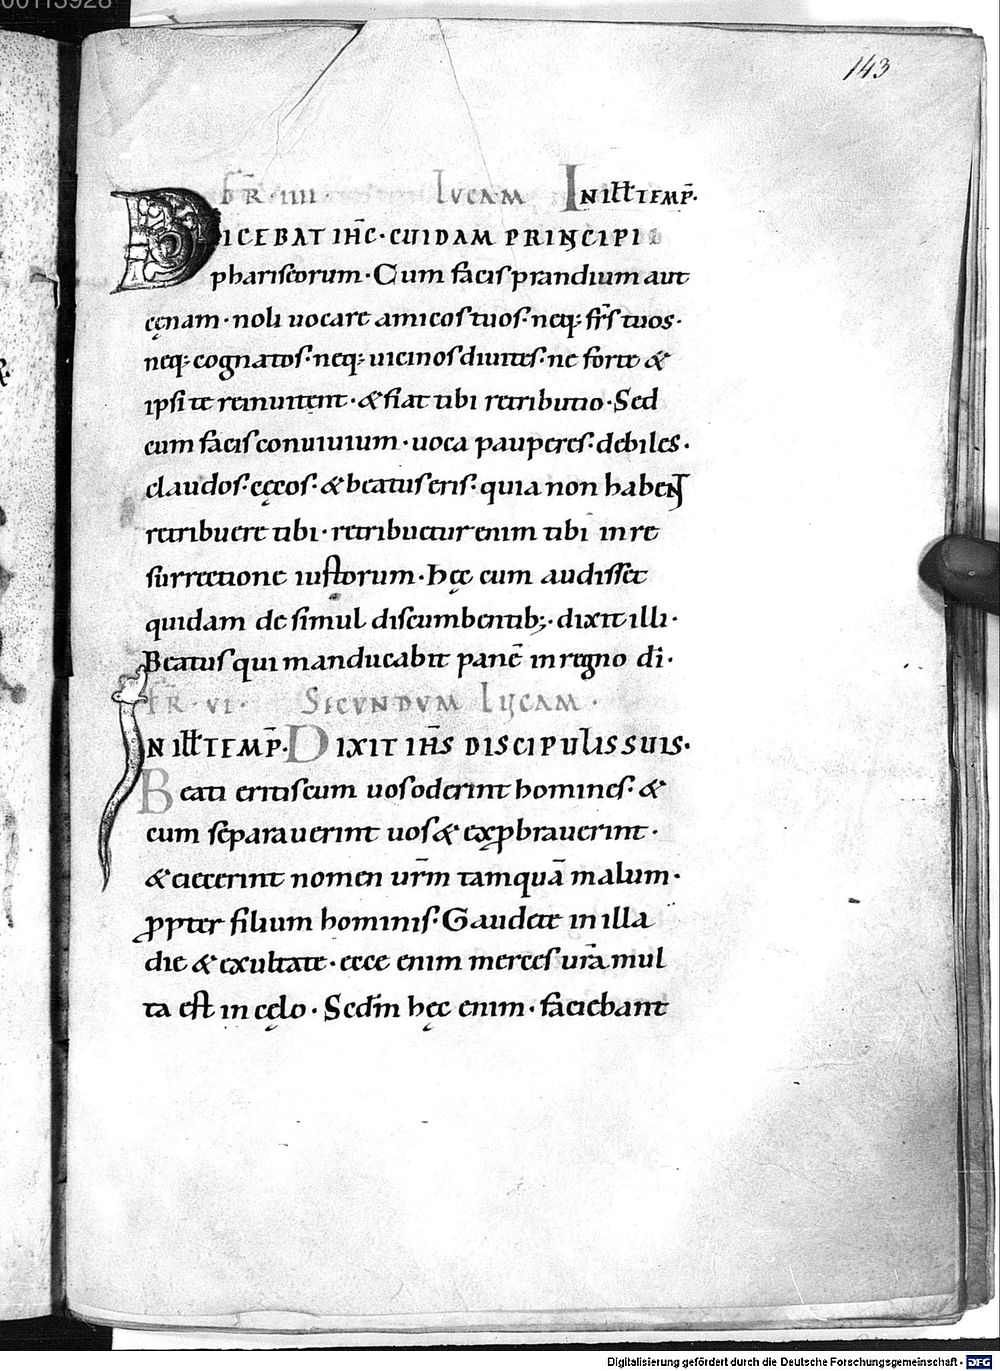 00113928
143
FR̄ · IIII LVCAM IN ILŁ TEMP̄.
DICEBAT IH̄C · CUIDAM PRINCIPI
phariseorum · Cum facis prandium aut
cęnam · noli uocare amicos tuos · neq; fr̄s tuos ·
neq; cognatos · neq; uicinos diuites · ne forte &
ipsi te reinuitent · & fiat tibi retributio · Sed
cum facis conuiuium · uoca pauperes · debiles ·
claudos · cęcos · & beatus eris · quia non habent
retribuere tibi · retribuetur enim tibi in re
surrectione iustorum · hęc cum audisset
quidam de simul discumbentib; · dixit illi ·
Beatus qui manducabit panē in regno dī ·
FR̄ · VI · SECUNDVM LUCAM ·
IN ILŁ TEMP̄. DIXIT IH̄S DISCIPULIS SUIS ·
Beati eritis cum uos oderint homines · &
cum separauerint uos & exꝓbrauerint ·
& eiecerint nomen ur̄m tamquā malum ·
ꝓpter filium hominis · Gaudete in illa
die & exultate · ecce enim merces ur̄a mul
ta est in cęlo · Sedm̄ hęc enim · faciebant
Digitalisierung gefördert durch die Deutsche Forschungsgemeinschaft · DFG